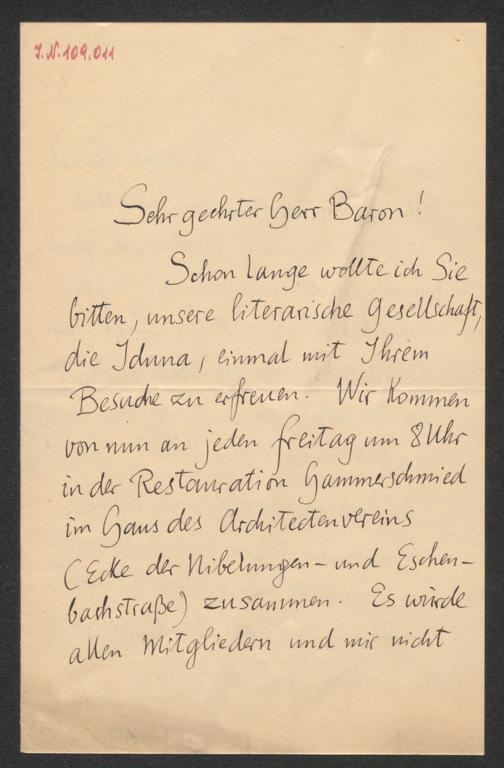 I.N. 109.011
Sehr geehrter Herr Baron!
Schon lange wollte ich Sie
bitten, unsere literarische Gesellschaft,
die Iduna, einmal mit Ihrem
Besuche zu erfreuen. Wir kommen
von nun an jeden Freitag um 8 Uhr
in der Restauration Hammerschmied
im Haus des Architectenvereins
(Ecke der Nibelungen- und Eschen-
bachstraße) zusammen. Es würde
allen Mitgliedern und mir nicht